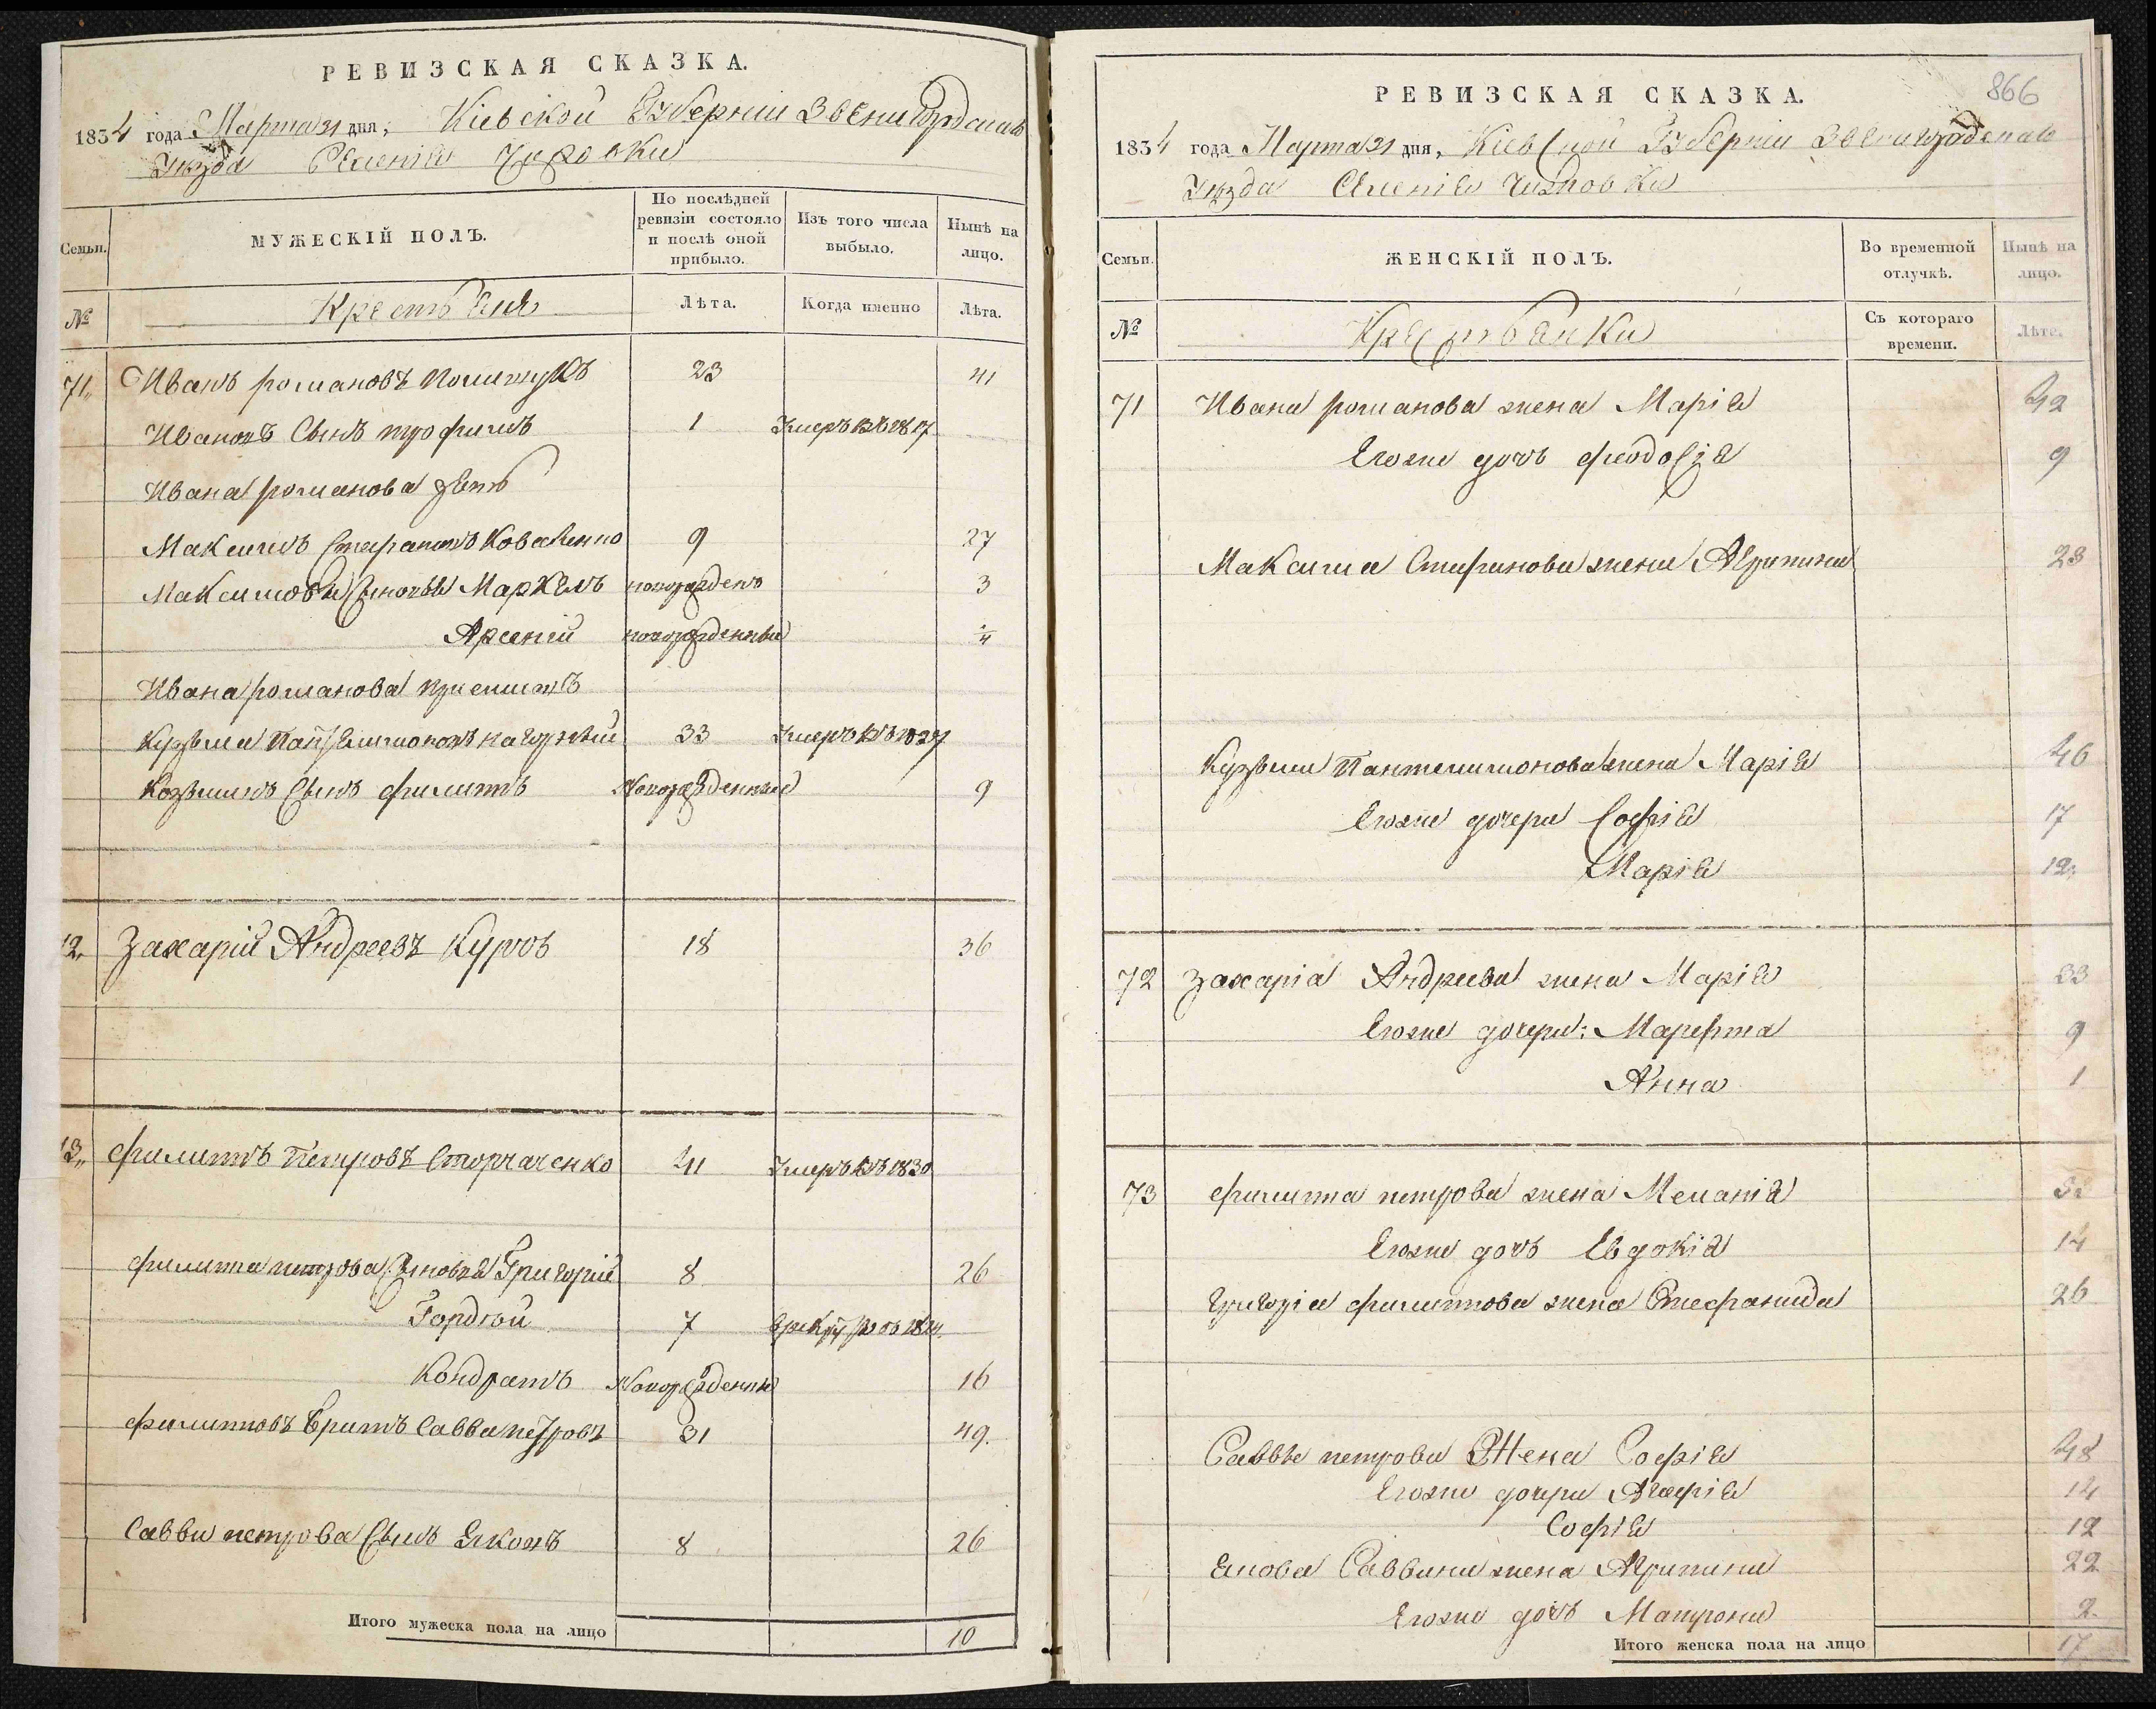 РЕВИЗСКАЯ СКАЗКА.
1834 года Марта 21 дня, Кіевской Губерніи Звенигородскаго
Уѣзда Селенія
Семьи.
МУЖЕСКІЙ ПОЛЪ.
По послѣдней ревизіи состояло и послѣ оной прибыло.
Изъ того числа выбыло.
Нынѣ на лицо.
№
Крестьяня
Лѣта.
Когда именно
Лѣта.
71 Иванъ романовъ Полищукъ 23 41
Ивановъ Сынъ трофимъ 1 Умеръ въ 1817
Ивана романова зять
Максимъ Стефановъ Коваленко 9 27
Максимовы Сыновья Маркелъ новорожденъ 3
Арсеній новорожденный
Ивана романова
Кузьма Пантелимоновъ 33 Умеръ въ 1827
Козьминъ Сынъ филипъ Новорожденный 9
72 Захарій Андреевъ Курчъ 18 36
73 филипъ Петровъ Сторчаченко 41 Умеръ въ 1830
филипа петрова Сыновья Григорій 8 26
Гордѣй 7
Кондратъ Новорожденный 16
филиповъ братъ Савва петровъ 31 49.
Саввы петрова Сынъ Яковъ 8 26
Итого мужеска пола на лицо 10
866
РЕВИЗСКАЯ СКАЗКА.
1834 года Марта 21 дня, Кіевской Губерніи Звенигородскаго
Уѣзда Селенія
Семьи.
ЖЕНСКІЙ ПОЛЪ.
Во временной отлучкѣ.
Нынѣ на лицо.
№
Крестьянки
Съ котораго времени.
Лѣта.
71 Ивана романова жена Марія 42
Егоже дочь феодосія 9
Максима Стефанова жена Агрипина 28
Кузьмы Пантелимонова жена Марія 46
Егоже дочери Софія 17
Марія 12
72 Захарія Андреева жена Марія 33
Егоже дочери: Марефта 9
Анна 1
73 филипа петрова жена Меланія
Егоже дочь Евдокія 14
Григорія филипова жена Стефанида 26
Саввы петрова Жена Софія 48
Егоже дочери Агафія 14
Софія 12
Якова Саввина жена Агрипина 22
Егоже дочь Матрона 2.
Итого женска пола на лицо 17